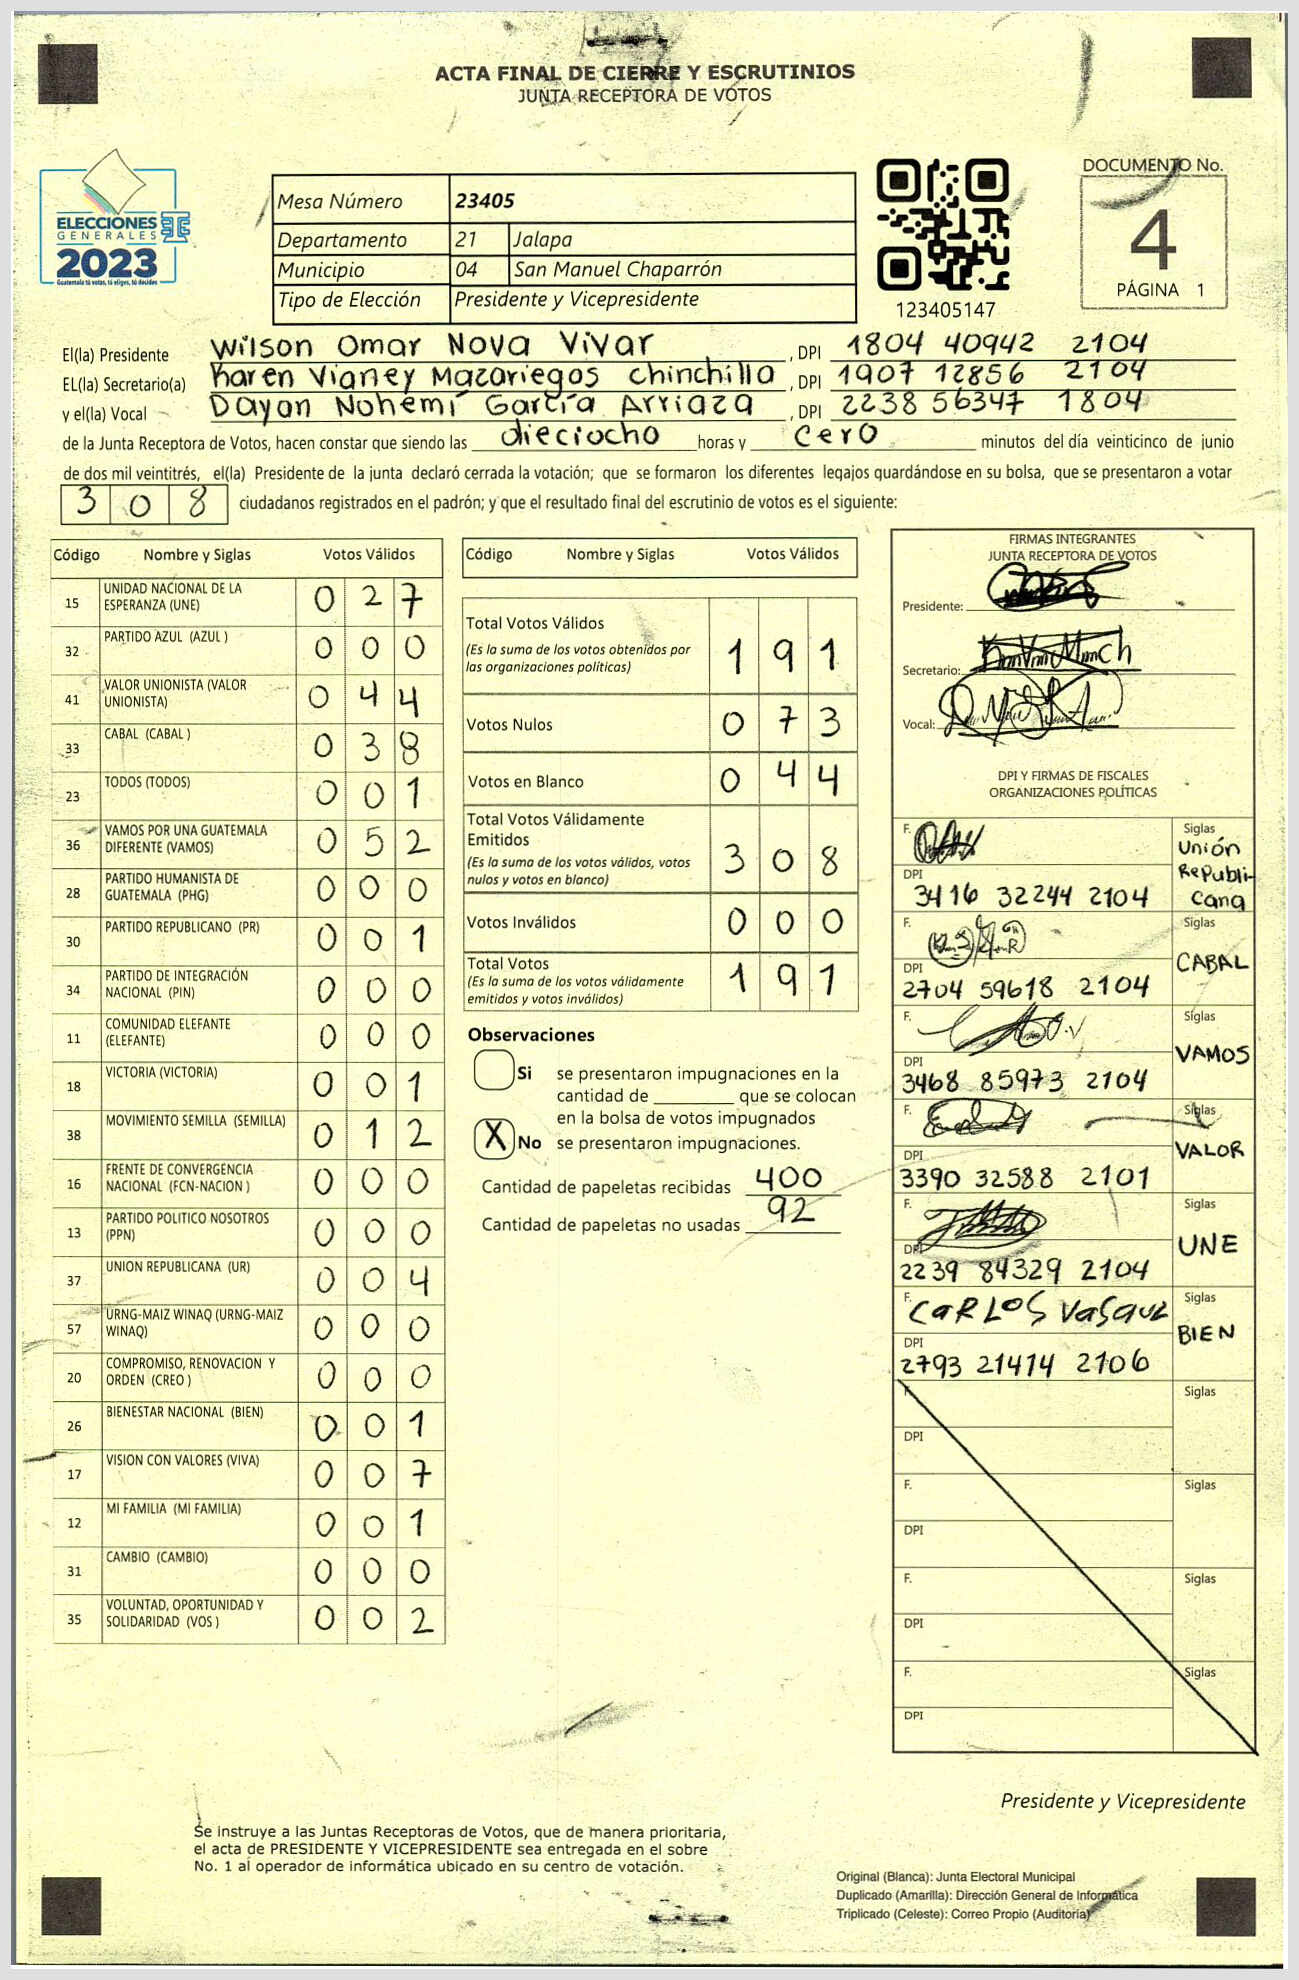 ACTA FINAL DE CIERRE Y ESCRUTINIOS
JUNTA RECEPTORA DE VOTOS
ELECCIONES
GENERALES
2023
Guatemala tú votas, tú eliges, tú decides
Mesa Número 23405
Departamento 21 Jalapa
Municipio 04 San Manuel Chaparrón
Tipo de Elección Presidente y Vicepresidente
123405147
DOCUMENTO No.
4
PÁGINA 1
El(la) Presidente Wilson Omar Nova Vivar , DPI 1804 40942 2104
EL(la) Secretario(a) Karen Vianey Mazariegos Chinchilla , DPI 1907 12856 2104
y el(la) Vocal Dayan Nohemí García Arriaza , DPI 2238 56347 1804
de la Junta Receptora de Votos, hacen constar que siendo las dieciocho horas y cero minutos del día veinticinco de junio
de dos mil veintitrés, el(la) Presidente de la junta declaró cerrada la votación; que se formaron los diferentes legajos guardándose en su bolsa, que se presentaron a votar
308 ciudadanos registrados en el padrón; y que el resultado final del escrutinio de votos es el siguiente:
Código Nombre y Siglas Votos Válidos
15 UNIDAD NACIONAL DE LA ESPERANZA (UNE) 027
32 PARTIDO AZUL (AZUL ) 000
41 VALOR UNIONISTA (VALOR UNIONISTA) 044
33 CABAL (CABAL ) 038
23 TODOS (TODOS) 001
36 VAMOS POR UNA GUATEMALA DIFERENTE (VAMOS) 052
28 PARTIDO HUMANISTA DE GUATEMALA (PHG) 000
30 PARTIDO REPUBLICANO (PR) 001
34 PARTIDO DE INTEGRACIÓN NACIONAL (PIN) 000
11 COMUNIDAD ELEFANTE (ELEFANTE) 000
18 VICTORIA (VICTORIA) 001
38 MOVIMIENTO SEMILLA (SEMILLA) 012
16 FRENTE DE CONVERGENCIA NACIONAL (FCN-NACION ) 000
13 PARTIDO POLITICO NOSOTROS (PPN) 000
37 UNION REPUBLICANA (UR) 004
57 URNG-MAIZ WINAQ (URNG-MAIZ WINAQ) 000
20 COMPROMISO, RENOVACION Y ORDEN (CREO ) 000
26 BIENESTAR NACIONAL (BIEN) 001
17 VISION CON VALORES (VIVA) 007
12 MI FAMILIA (MI FAMILIA) 001
31 CAMBIO (CAMBIO) 000
35 VOLUNTAD, OPORTUNIDAD Y SOLIDARIDAD (VOS ) 002
Código Nombre y Siglas Votos Válidos
Total Votos Válidos
(Es la suma de los votos obtenidos por
las organizaciones políticas) 191
Votos Nulos 073
Votos en Blanco 044
Total Votos Válidamente
Emitidos
(Es la suma de los votos válidos, votos
nulos y votos en blanco) 308
Votos Inválidos 000
Total Votos
(Es la suma de los votos válidamente
emitidos y votos inválidos) 191
Observaciones
Si se presentaron impugnaciones en la
cantidad de ________ que se colocan
en la bolsa de votos impugnados
X No se presentaron impugnaciones.
Cantidad de papeletas recibidas 400
Cantidad de papeletas no usadas 92
FIRMAS INTEGRANTES
JUNTA RECEPTORA DE VOTOS
Presidente:
Secretario:
Vocal:
DPI Y FIRMAS DE FISCALES
ORGANIZACIONES POLÍTICAS
F. Siglas Unión Republicana
DPI 3416 32244 2104
F. Siglas CABAL
DPI 2704 59618 2104
F. Siglas VAMOS
DPI 3468 85973 2104
F. Siglas VALOR
DPI 3390 32588 2101
F. Siglas UNE
DPI 2239 84329 2104
F. CARLOS Vasquez Siglas BIEN
DPI 2793 21414 2106
F. Siglas
DPI
F. Siglas
DPI
F. Siglas
DPI
F. Siglas
DPI
Presidente y Vicepresidente
Se instruye a las Juntas Receptoras de Votos, que de manera prioritaria,
el acta de PRESIDENTE Y VICEPRESIDENTE sea entregada en el sobre
No. 1 al operador de informática ubicado en su centro de votación.
Original (Blanca): Junta Electoral Municipal
Duplicado (Amarilla): Dirección General de Informática
Triplicado (Celeste): Correo Propio (Auditoría)